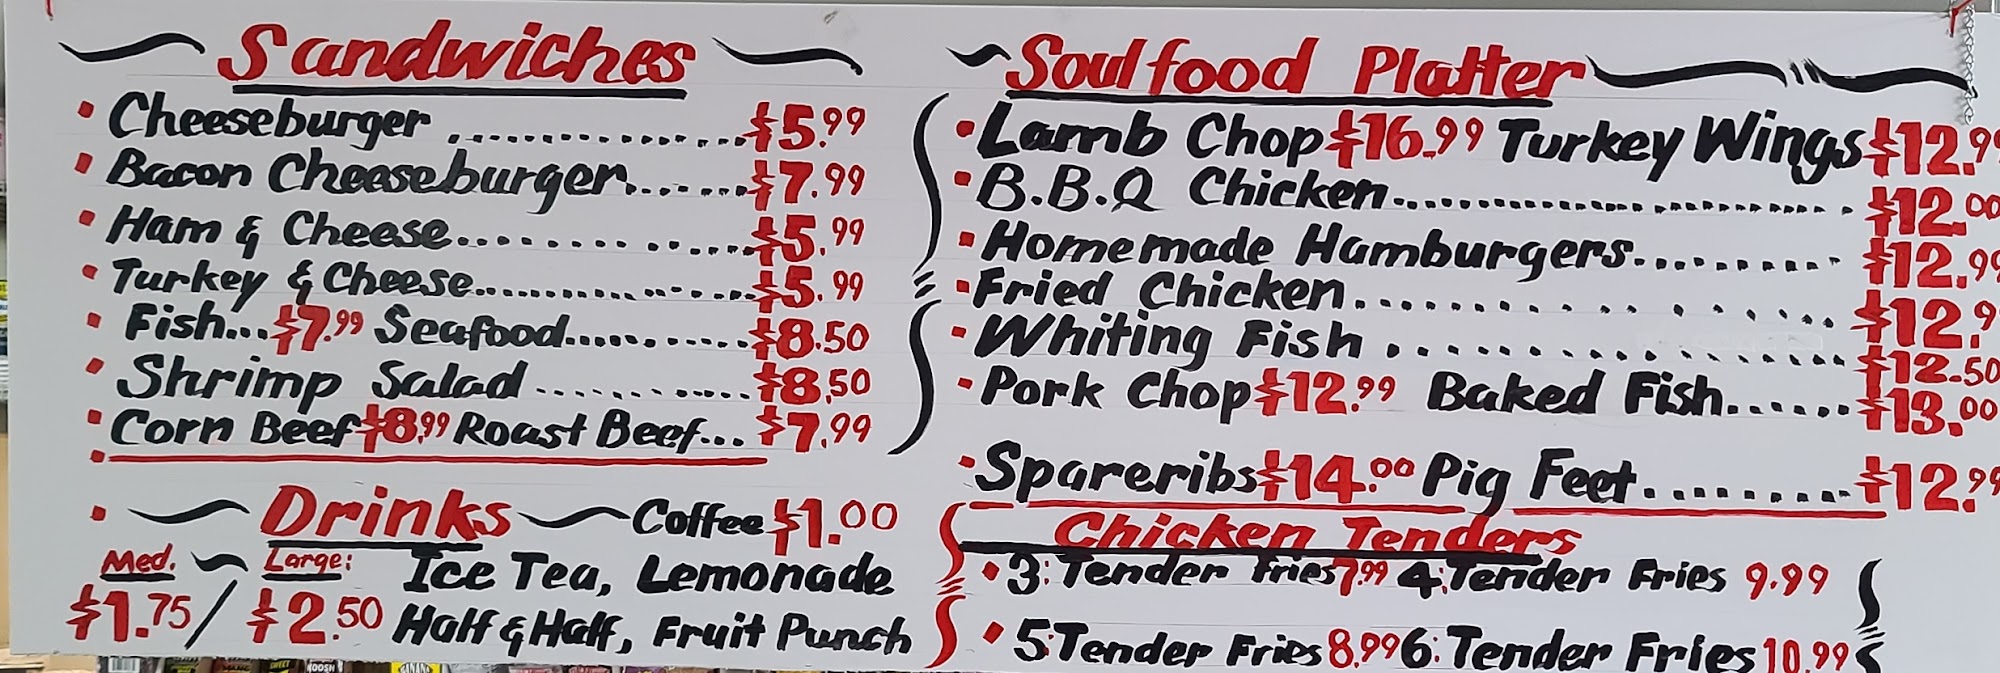 Sandwiches
Cheeseburger ............... $5.99
Bacon Cheeseburger....... $7.99
Ham & Cheese............... $5.99
Turkey & Cheese............... $5.99
Fish...$7.99 Seafood............ $8.50
Shrimp Salad ............ $8.50
Corn Beef $8.99 Roast Beef... $7.99
Drinks Coffee $1.00
Med. Large: Ice Tea, Lemonade
$1.75/ $2.50 Half & Half, Fruit Punch
Soulfood Platter
Lamb Chop $16.99 Turkey Wings $12.99
B.B.Q Chicken............... $12.00
Homemade Hamburgers............ $12.99
Fried Chicken............... $12.9
Whiting Fish ............... $12.50
Pork Chop $12.99 Baked Fish...... $13.00
Spareribs $14.00 Pig Feet......... $12.99
Chicken Tenders
3: Tender Fries 7.99 4: Tender Fries 9.99
5: Tender Fries 8.99 6: Tender Fries 10.99